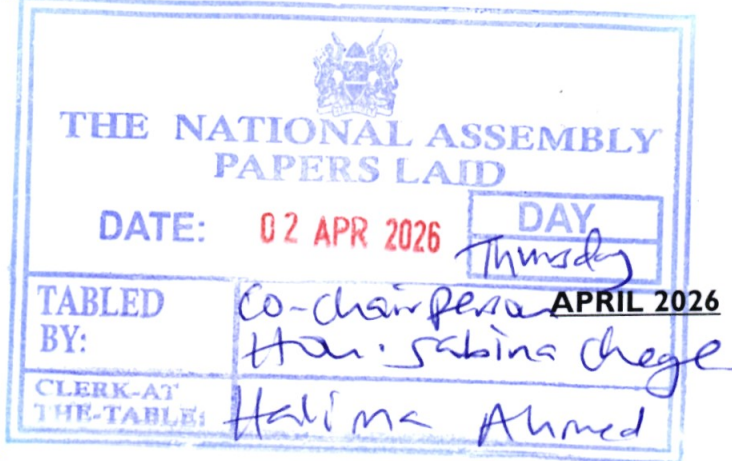 THE NATIONAL ASSEMBLY
PAPERS LAID
DATE: 02 APR 2026 DAY
Thursday
TABLED BY: Co-chairperson APRIL 2026
Hon. Sabina Chege
CLERK-AT THE-TABLE: Halima Ahmed